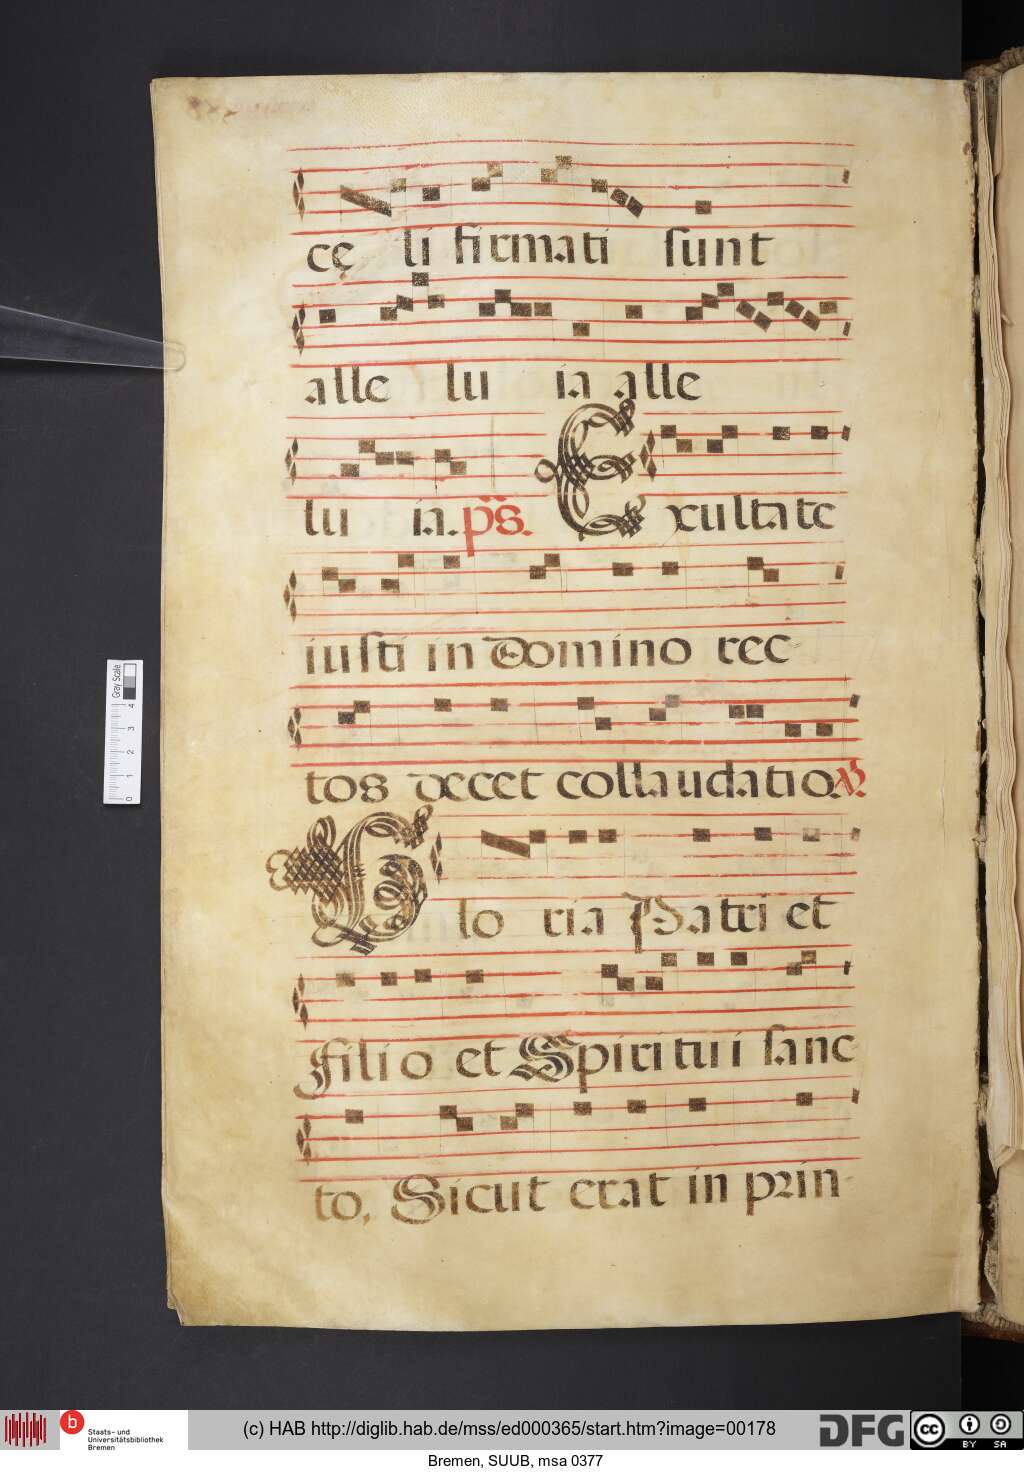 cę li firmati sunt
alle lu ia alle
lu ia. ps. Exultate
iusti in Domino rec-
tos decet collaudatio.
Glo ria Patri et
Filio et Spiritui sanc-
to, Sicut erat in prin-
Gray Scale
0 1 2 3 4
b Staats- und Universitätsbibliothek Bremen
(c) HAB http://diglib.hab.de/mss/ed000365/start.htm?image=00178
DFG
cc BY SA
Bremen, SUUB, msa 0377